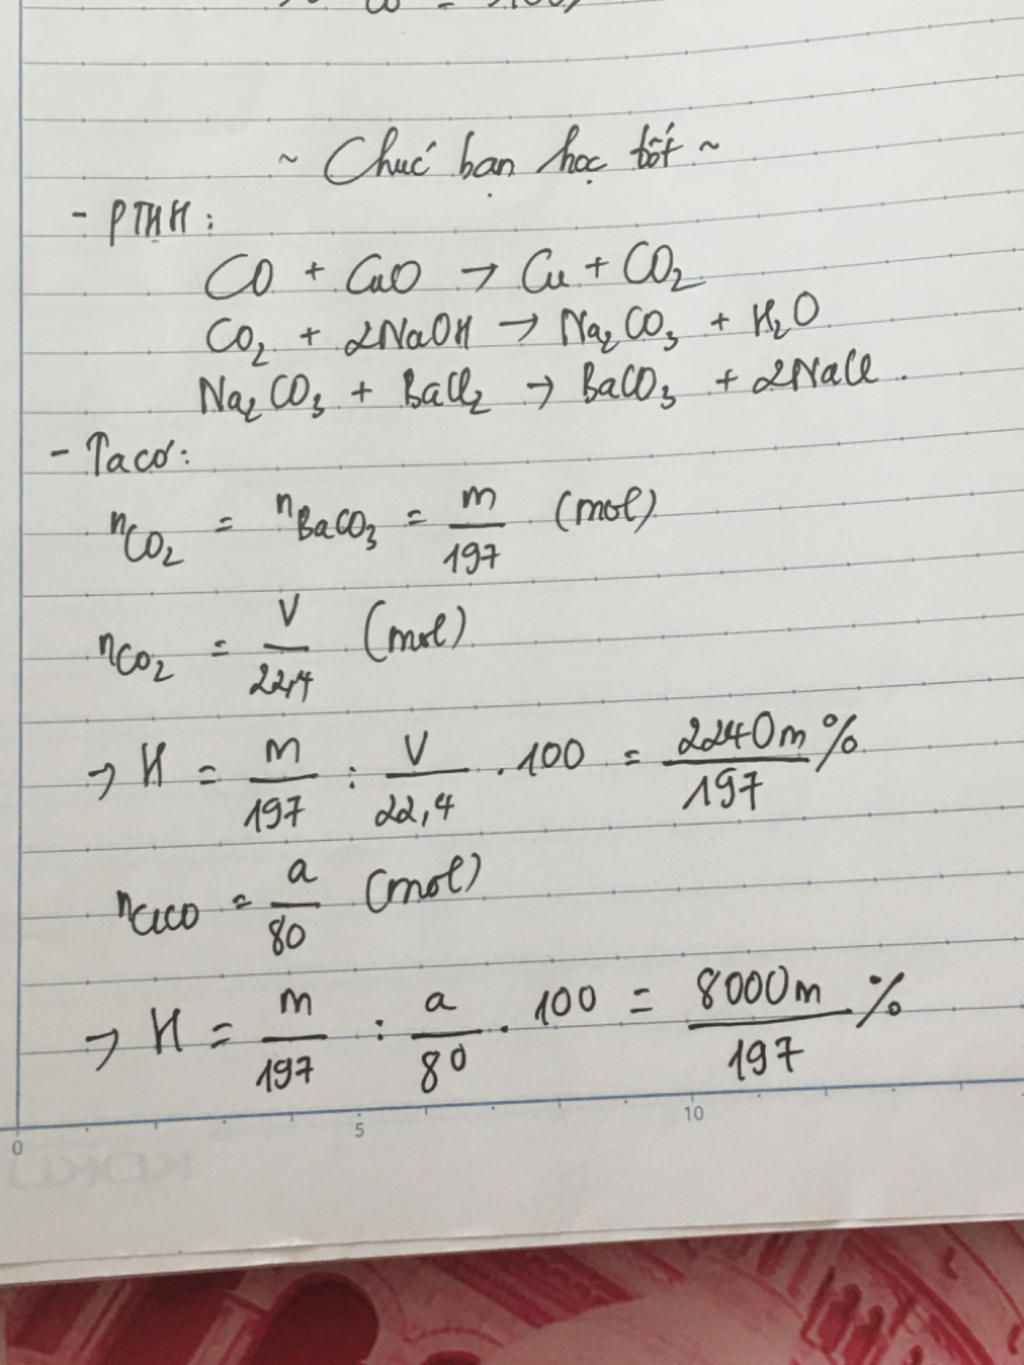 ~ Chúc bạn học tốt ~
- PTHH:
CO + CuO → Cu + CO₂
CO₂ + 2NaOH → Na₂CO₃ + H₂O
Na₂CO₃ + BaCl₂ → BaCO₃ + 2NaCl.
- Ta có:
nCO₂ = nBaCO₃ = m/197 (mol)
nCO₂ = V/22,4 (mol)
→ H = m/197 : V/22,4 . 100 = 2240m/197 %
nCuO = a/80 (mol)
→ H = m/197 : a/80 . 100 = 8000m/197 %
0 5 10